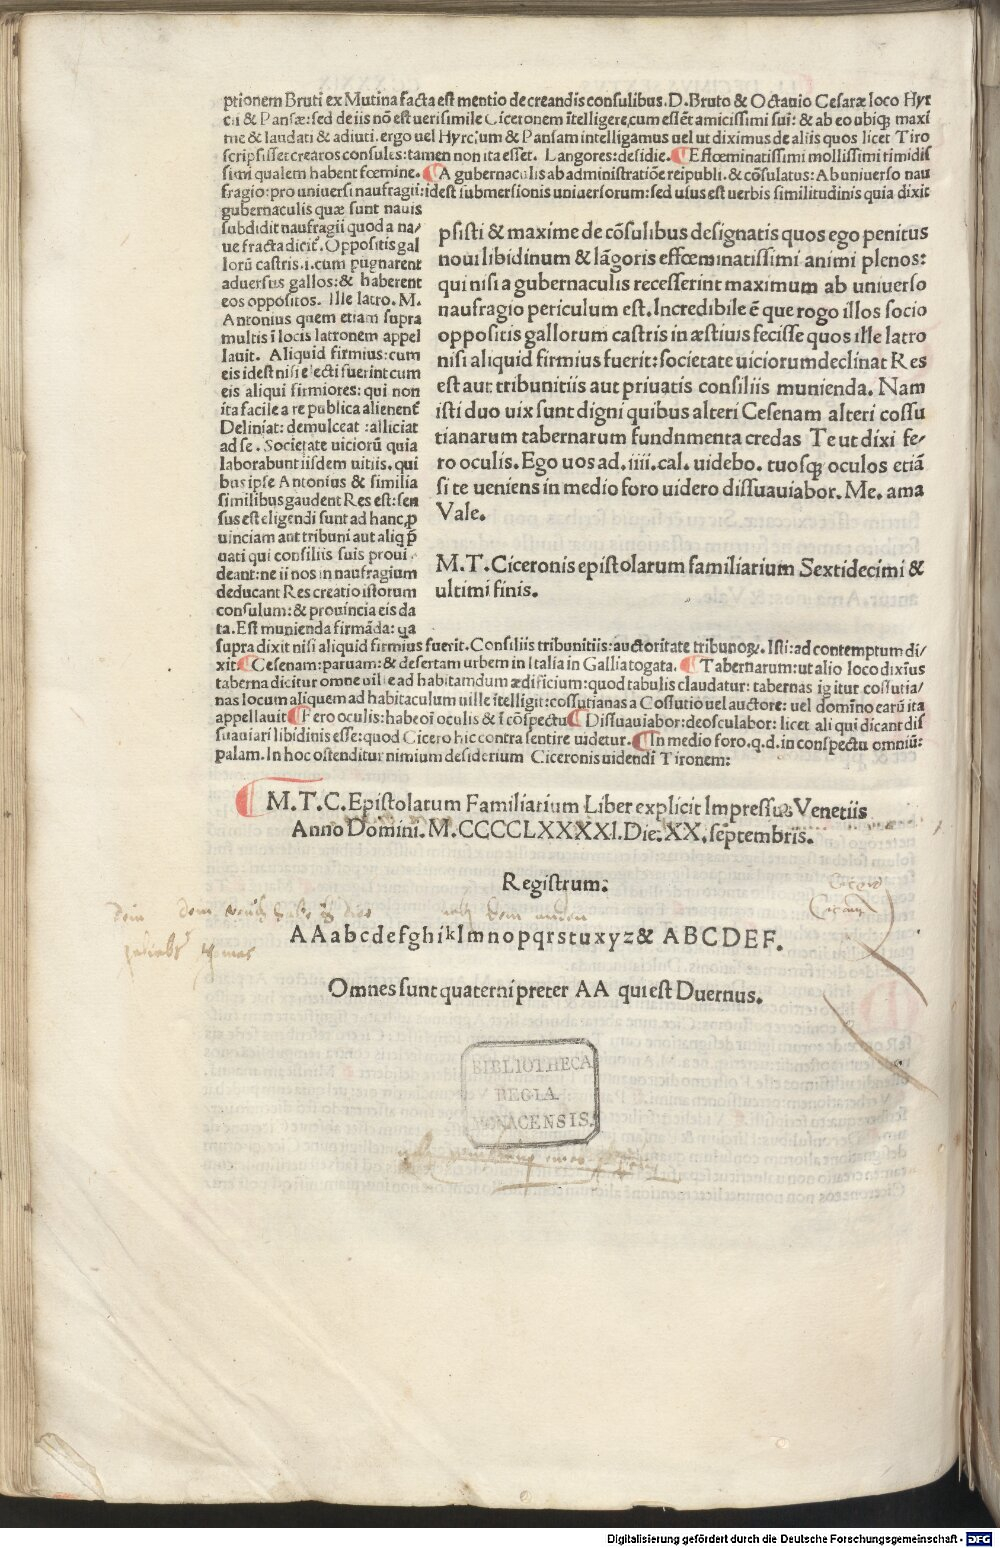 ptionem Bruti ex Mutina facta est mentio de creandis consulibus. D. Bruto & Octauio Cesaræ loco Hyr
cii & Pansæ: sed de iis nō est uerisimile Ciceronem ītelligere, cum essēt amicissimi sui: & ab eo ubiqꝫ maxi
me & laudati & adiuti. ergo uel Hyrcium & Pansam intelligamus uel ut diximus de aliis quos licet Tiro
scripsisset crearos consules: tamen non ita esset. Langores: desidie. ¶ Effœminatissimi mollissimi timidis
simi qualem habent fœmine. ¶ A gubernaculis ab administratiōe reipubli. & cōsulatus: Ab uniuerso nau
fragio: pro uniuersi naufragii: idest submersionis uniuersorum: sed usus est uerbis similitudinis quia dixit
gubernaculis quæ sunt nauis
subdidit naufragii quod a na/
ue fracta dicit̄. Oppositis gal
lorū castris .i. cum pugnarent
aduersus gallos: & haberent
eos oppositos. Ille latro. M.
Antonius quem etiam supra
multis ī locis latronem appel
lauit. Aliquid firmius: cum
eis idest nisi electi fuerint cum
eis aliqui firmiores: qui non
ita facile a re publica alienent̄
Deliniat: demulceat: alliciat
ad se. Societate uiciorū quia
laborabunt iisdem uitiis. qui
bus ipse Antonius & similia
similibus gaudent Res est: sen
sus est eligendi sunt ad hanc ꝓ
uinciam aut tribuni aut aliq p̄
uati qui consiliis suis proui
deant: ne ii nos in naufragium
deducant Res creatio istorum
consulum: & prouincia eis da
ta. Est munienda firmāda: ꝗa
psisti & maxime de cōsulibus designatis quos ego penitus
noui libidinum & lāgoris effœminatissimi animi plenos:
qui nisi a gubernaculis recesserint maximum ab uniuerso
naufragio periculum est. Incredibile ē que rogo illos socio
oppositis gallorum castris in æstiuis fecisse quos ille latro
nisi aliquid firmius fuerit: societate uiciorum declinat Res
est aut tribunitiis aut priuatis consiliis munienda. Nam
isti duo uix sunt digni quibus alteri Cesenam alteri cossu
tianarum tabernarum fundnmenta credas Te ut dixi fe/
ro oculis. Ego uos ad. iiii. cal. uidebo. tuosqꝫ oculos etiā
si te ueniens in medio foro uidero dissuauiabor. Me. ama
Vale.
M. T. Ciceronis epistolarum familiarium Sextidecimi &
ultimi finis.
supra dixit nisi aliquid firmius fuerit. Consiliis tribunitiis: auctoritate tribunoꝝ. Isti: ad contemptum di/
xit ¶ Cesenam: paruam: & desertam urbem in Italia in Gallia togata. ¶ Tabernarum: ut alio loco dixīus
taberna dicitur omne uille ad habitamdum ædificium: quod tabulis claudatur: tabernas igitur cossutia/
nas locum aliquem ad habitaculum uille ītelligit: cossutianas a Cossutio uel auctore: uel domīno earū ita
appellauit ¶ Fero oculis: habeo ī oculis & ī cōspectu ¶ Dissuauiabor: deosculabor: licet ali qui dicant dis
suauiari libidinis esse: quod Cicero hic contra sentire uidetur. ¶ In medio foro. q. d. in conspectu omniū:
palam. In hoc ostenditur nimium desiderium Ciceronis uidendi Tironem:
¶ M. T. C. Epistolarum Familiarium Liber explicit Impressus Venetiis
Anno Domini. M. CCCCLXXXXI. Die. XX. septembris.
Registrum:
A A a b c d e f g h i k l m n o p q r s t u x y z & A B C D E F.
Omnes sunt quaterni preter AA qui est Duernus.
BIBLIOTHECA
REGIA
MONACENSIS.
Digitalisierung gefördert durch die Deutsche Forschungsgemeinschaft - DFG